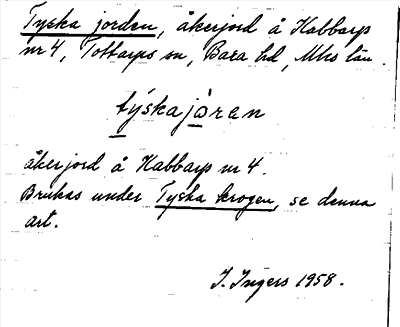 Tyska jorden, åkerjord å Kabbarp
nr 4, Tottarps sn, Bara hd, Mhs län.
týskajòren
åkerjord å Kabbarp nr 4.
Brukas under Tyska krogen, se denna
art.
I. Ingers 1958.